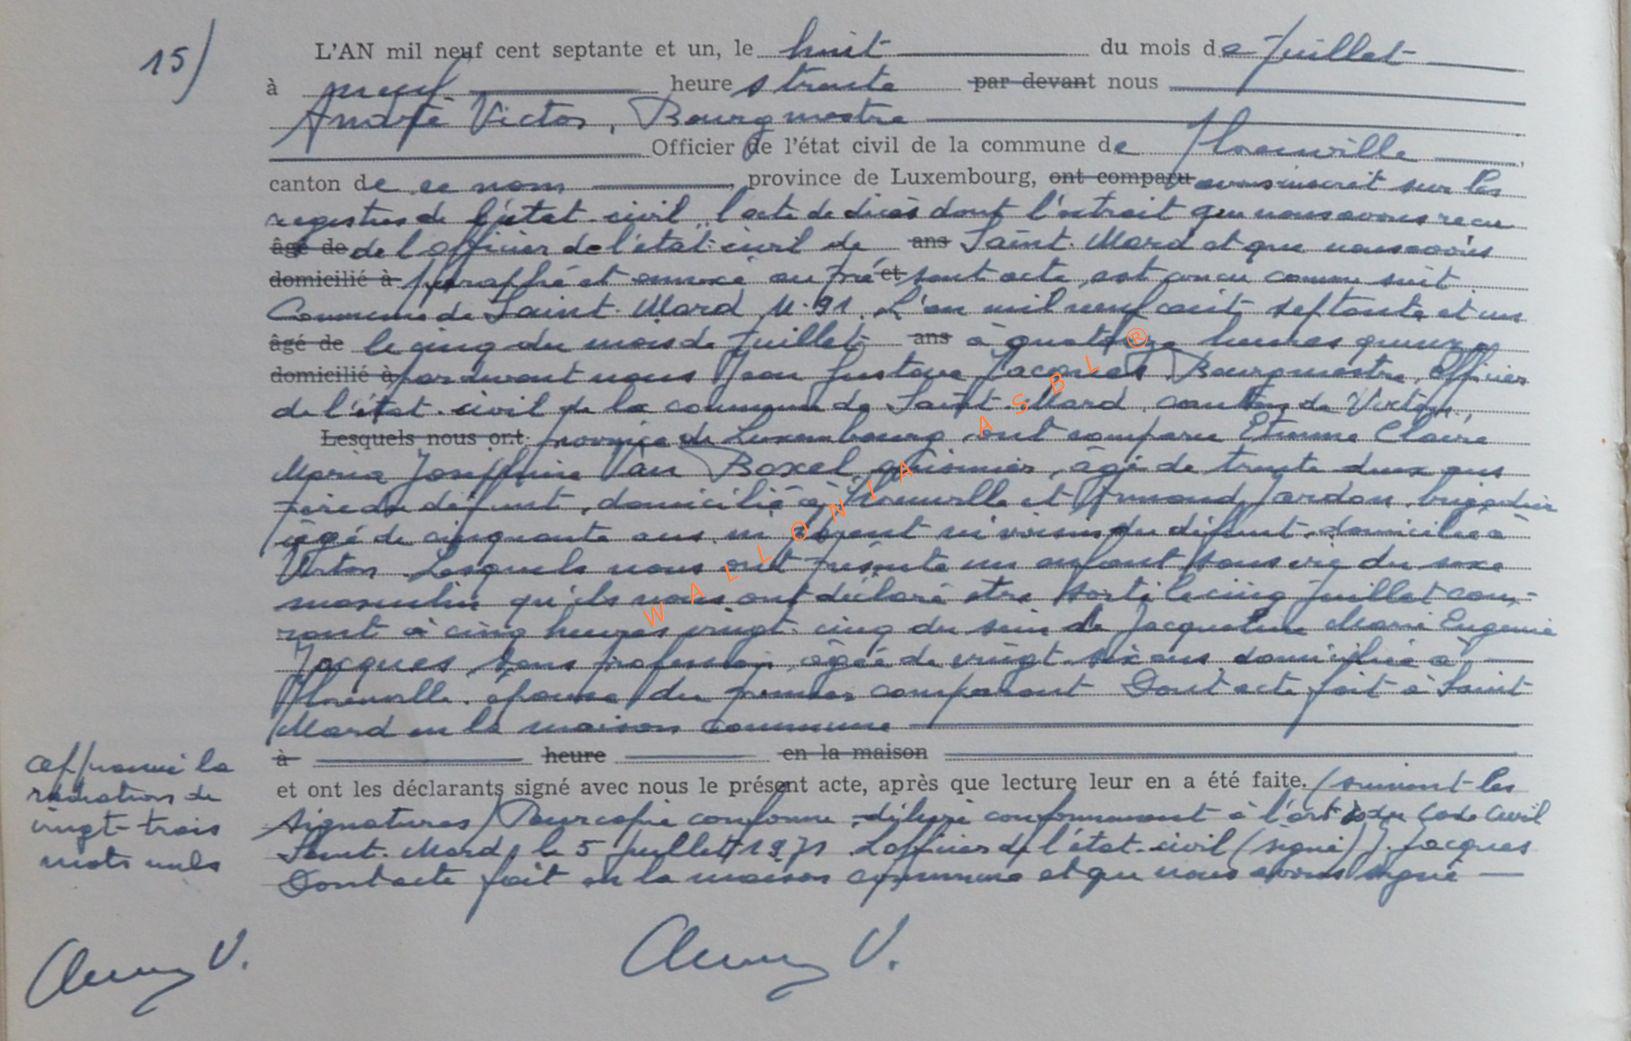 15) L'AN mil neuf cent septante et un, le huit du mois de Juillet
à neuf heures trente par devant nous
André Victor, Bourgmestre
Officier de l'état civil de la commune de Florenville,
canton de ce nom, province de Luxembourg, ont comparu avons inscrit sur les
registres de l'état-civil, l'acte de décès dont l'extrait que nous avons reçu
âgé de de l'officier de l'état-civil de ans Saint-Mard et que nous avons
domicilié à paraphé et annexé au pré et sent acte, est conçu comme suit
Commune de Saint-Mard N. 91. L'an mil neuf cent septante et un
âgé de le cinq du mois de Juillet ans à quatorze heures quinze
domicilié à par devant nous Jean Gustave Jacques Bourgmestre, Officier
de l'état-civil de la commune de Saint-Mard, canton de Virton,
Lesquels nous ont province de Luxembourg ont comparu Etienne Claire
Maria Joséphine Van Boxel, âgé de trente deux ans
père du défunt, domicilié à Florenville et Armand Jardon, brigadier
âgé de cinquante ans, ni parent ni voisin du défunt, domicilié à
Virton. Lesquels nous ont présenté un enfant sans vie du sexe
masculin qu'ils nous ont déclaré être sorti le cinq Juillet cou-
rant à cinq heures vingt-cinq du sein de Jacqueline Marie Eugenie
Jacques, sans profession, âgée de vingt six ans domiciliée à
Florenville, épouse du premier comparant Dont acte fait à Saint
Mard en la maison commune
à heure en la maison
et ont les déclarants signé avec nous le présent acte, après que lecture leur en a été faite. (suivent les
signatures) Pour copie conforme, délivré conformément à l'art du Code Civil
Saint-Mard, le 5 Juillet 1971 L'officier de l'état-civil (signé) J. Jacques
Dont acte fait en la maison commune et que nous avons signé
approuvé la
radiation de
vingt-trois
mots nuls
V.
V.
WALLONIA ASBL ®